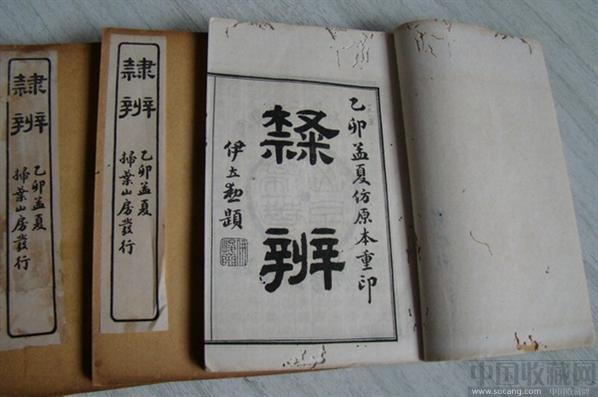 乙卯孟夏仿原本重印
隸辨
伊立勳題
隸辨
乙卯孟夏
掃葉山房發行
隸辨
乙卯孟夏
掃葉山房發行
中国收藏网
www.socang.com 中国收藏网